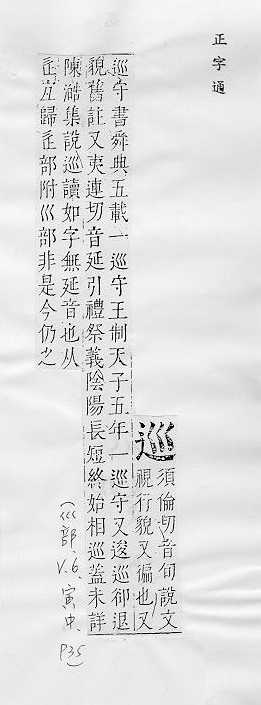 正字通
巡
須倫切音旬說文
視行貌又徧也又
巡守書舜典五載一巡守王制天子五年一巡守又逡巡卻退
貌舊註又夷連切音延引禮祭義陰陽長短終始相巡蓋未詳
陳澔集說巡讀如字無延音也从
辵宜歸辵部附巛部非是今仍之
(巛部, V.6, 寅中, P35)